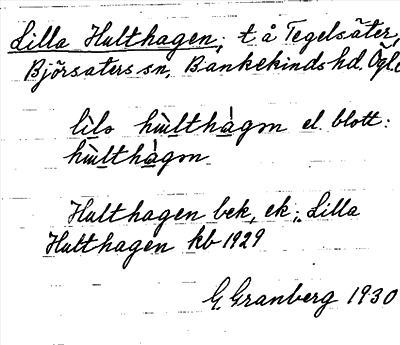 Lilla Hulthagen, t å Tegelsäter,
Björsäters sn, Bankekinds hd. Ögl.
lìlo hùlthàgon el. blott:
hùlthàgon
Hulthagen bek, ek; Lilla
Hulthagen kb 1929
G. Granberg 1930